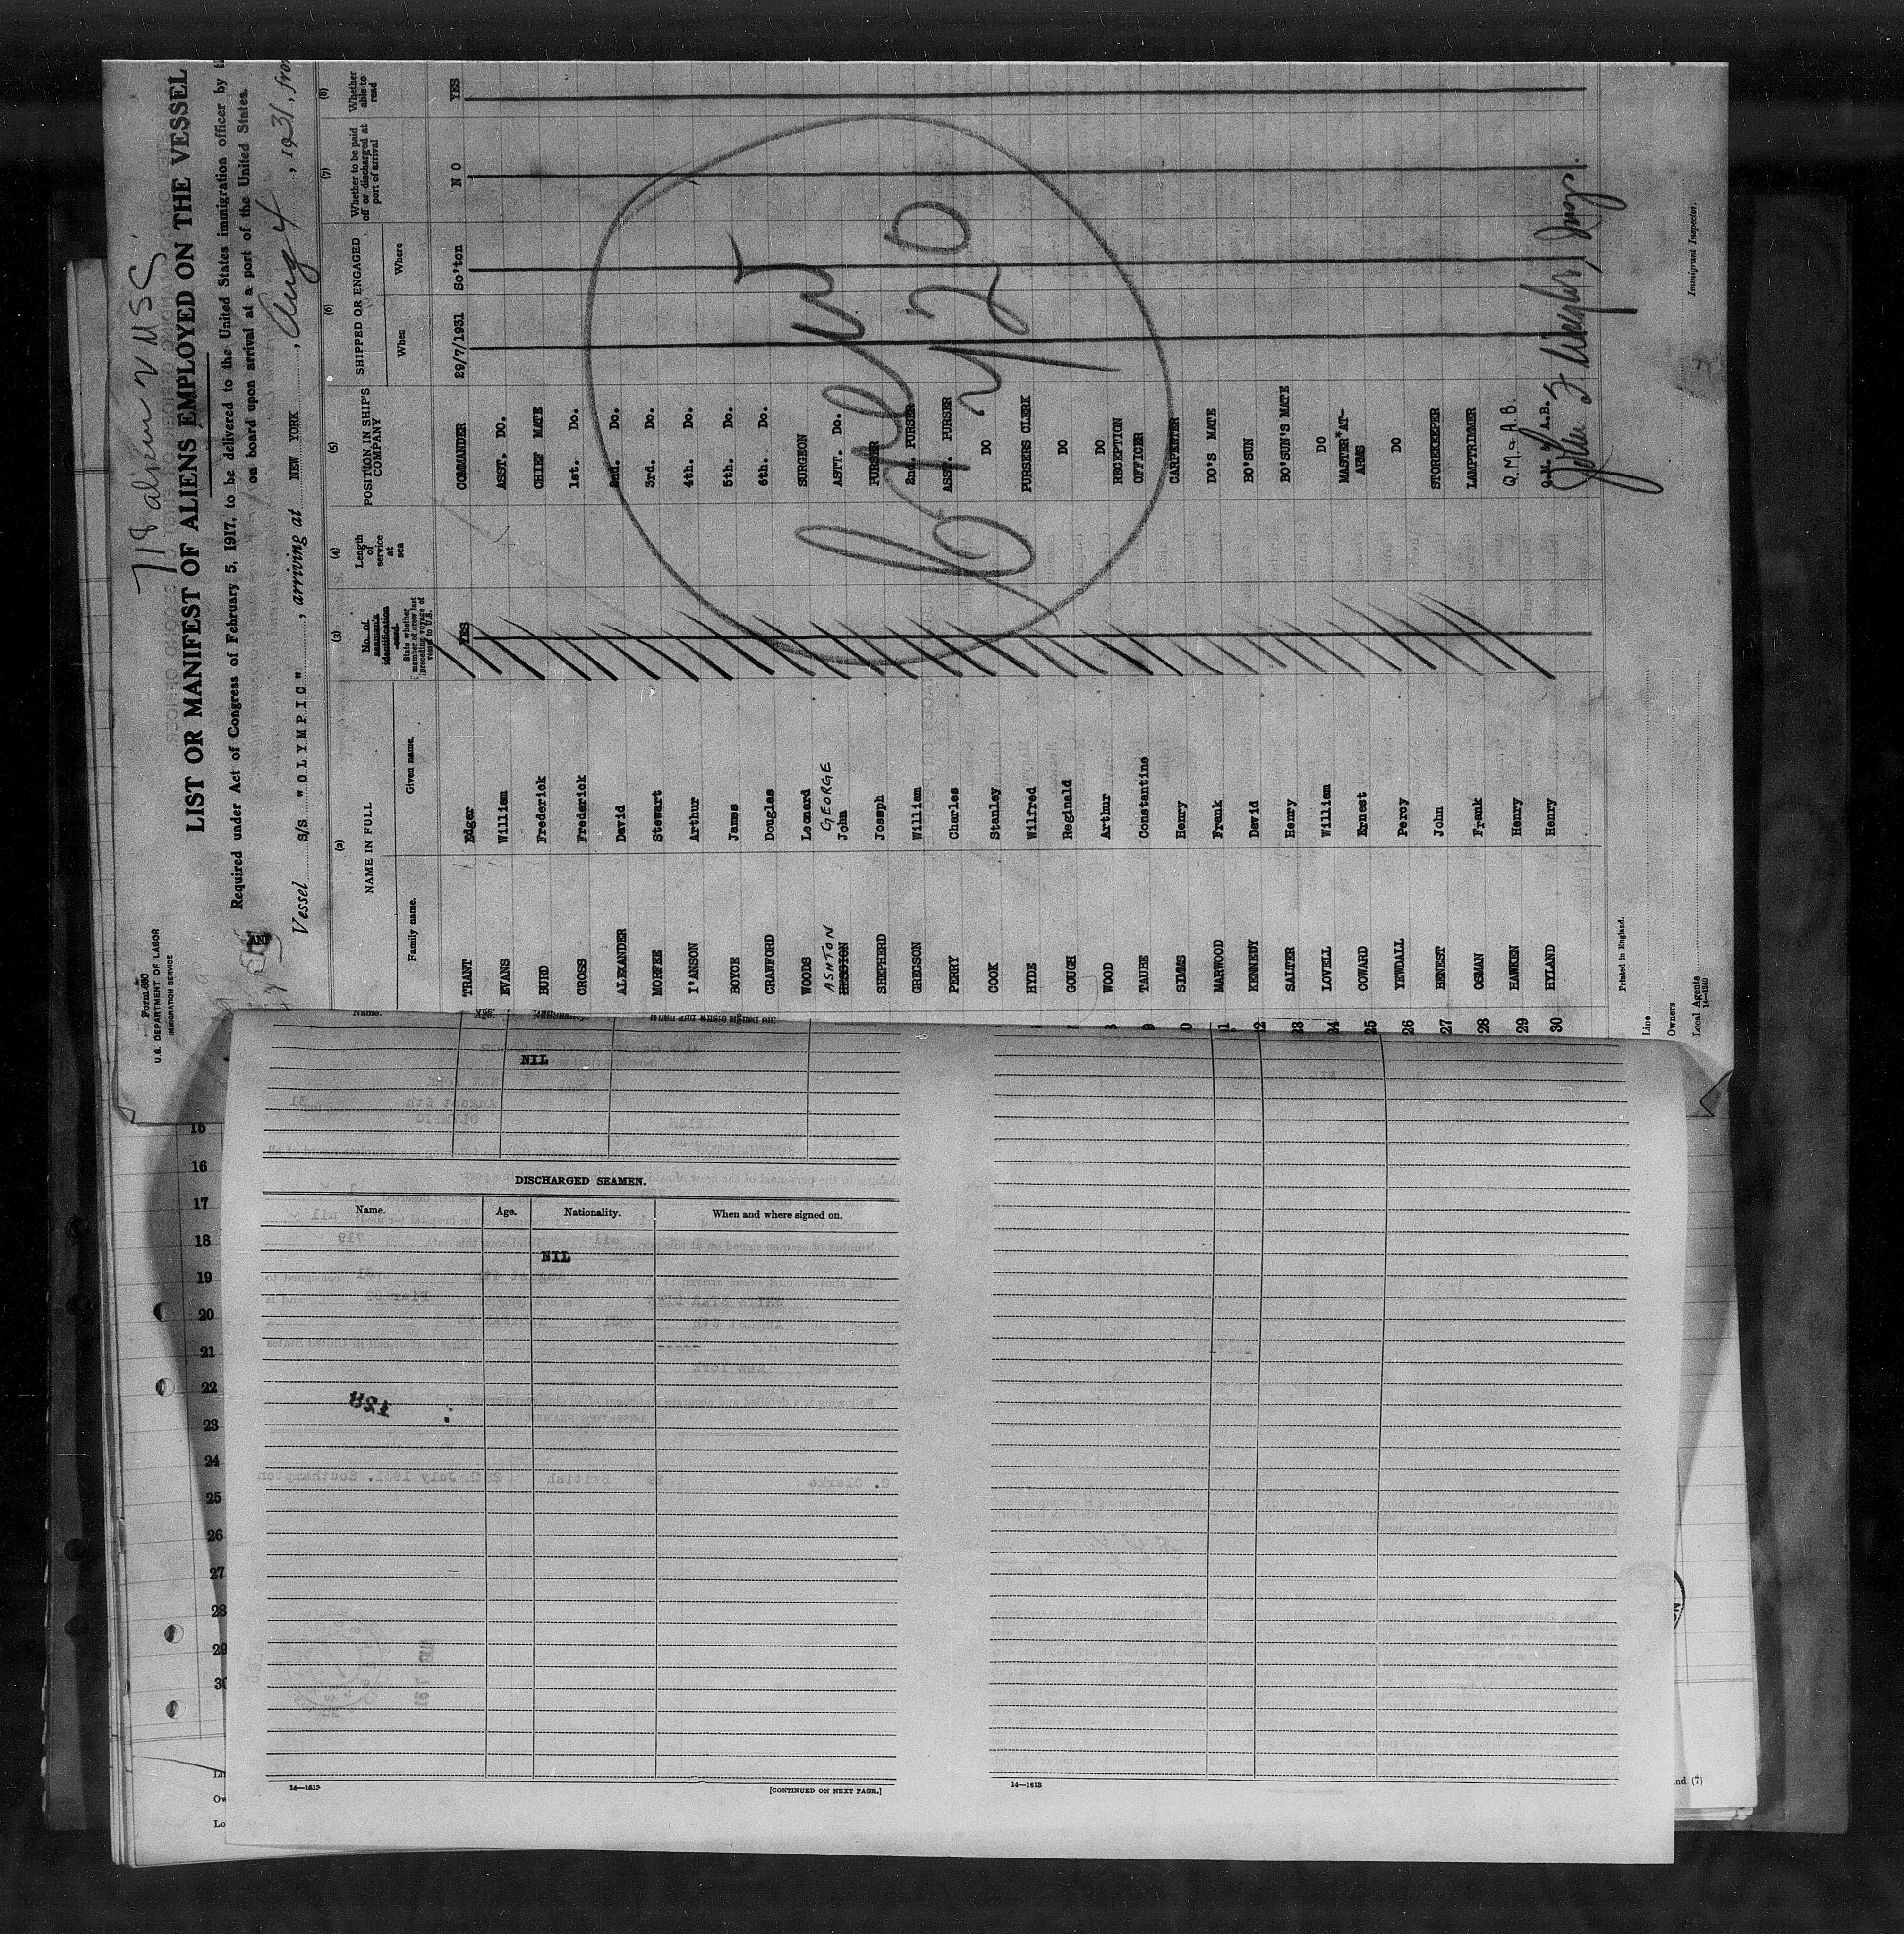 718 aliens V USC.
Form 680
U.S. DEPARTMENT OF LABOR
IMMIGRATION SERVICE
LIST OR MANIFEST OF ALIENS EMPLOYED ON THE VESSEL
Required under Act of Congress of February 5, 1917, to be delivered to the United States immigration officer by
AND
on board upon arrival at a port of the United States.
Vessel S/S "OLYMPIC", arriving at NEW YORK, Aug 4, 1931, from
(2) (3) (4) (5) (6) (7) (8)
NAME IN FULL
Family name. Given name.
No. of seaman's identification card
State whether member of crew last preceding voyage of vessel to U.S.
Length of service at sea
POSITION IN SHIP'S COMPANY
SHIPPED OR ENGAGED
When Where
Whether to be paid off or discharged at port of arrival
Whether able to read
TRANT Edgar YES COMMANDER 29/7/1931 So'ton NO YES
EVANS William ASST. DO.
BURD Frederick CHIEF MATE
CROSS Frederick 1st. Do.
ALEXANDER David 2nd. Do.
MORFEE Stewart 3rd. Do.
I'ANSON Arthur 4th. Do.
BOYCE James 5th. Do.
CRAWFORD Douglas 6th. Do.
WOODS Leonard SURGEON
ASHTON GEORGE John ASTT. Do.
SHEPHERD Joseph PURSER
GREGSON William 2nd. PURSER
PERRY Charles ASST. PURSER
COOK Stanley DO
HYDE Wilfred PURSERS CLERK
GOUCH Reginald DO
WOOD Arthur DO
TAUBE Constantine RECEPTION OFFICER
SIMMS Henry CARPENTER
21 MARWOOD Frank DO'S MATE
22 KENNEDY David BO'SUN
23 SALTER Henry BO'SUN'S MATE
24 LOVELL William DO
25 COWARD Ernest MASTER*AT-ARMS
26 YEWDALL Percy DO
27 BENEST John STOREKEEPER
28 OSMAN Frank LAMPTRIMMER
29 HAWKEN Henry Q.M. & A.B.
30 HYLAND Henry Q.M. & A.B.
Crew
Printed in England.
Line
Owners
Local Agents
14—1240
Immigrant Inspector.
Name.
NIL
DISCHARGED SEAMEN.
Name. Age. Nationality. When and where signed on.
NIL
128
14—1613
[CONTINUED ON NEXT PAGE.]
14—1613
15
16
17
18
19
20
21
22
23
24
25
26
27
28
29
30
Ow
Lo
nd (7)